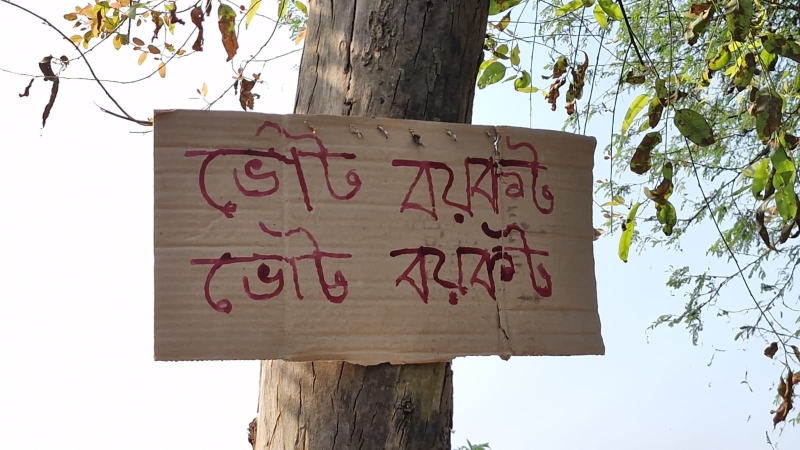 ভোট বয়কট
ভোট বয়কট